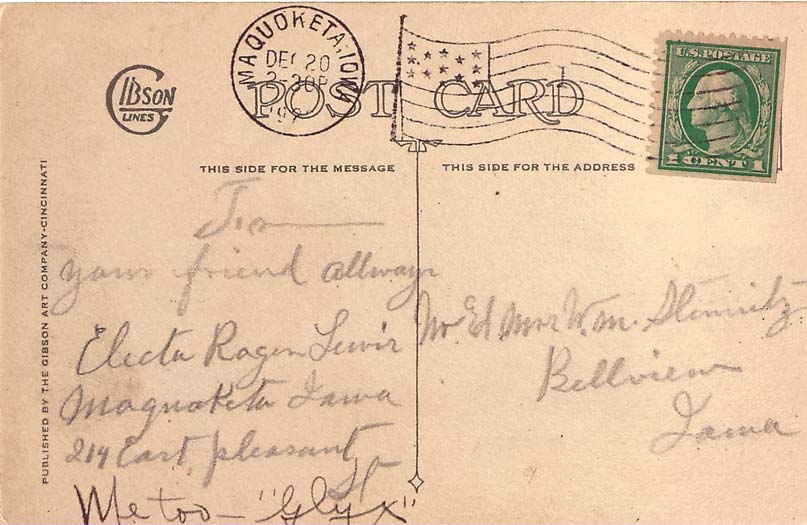 MAQUOKETA, IOWA
DEC 20
2-30P
POST CARD
U.S. POSTAGE
1 CENT 1
GIBSON
LINES
THIS SIDE FOR THE MESSAGE
THIS SIDE FOR THE ADDRESS
PUBLISHED BY THE GIBSON ART COMPANY-CINCINNATI
your friend allways
Electa Rogen Lewis
Maquoketa Iowa
214 East pleasant
St
Me too - "Glyx"
Mr Ed Mrs W.m.
Bellview
Iowa